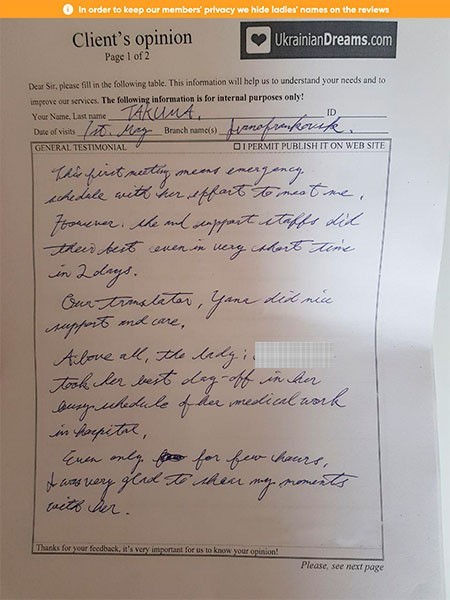 In order to keep our members' privacy we hide ladies' names on the reviews
Client's opinion
Page 1 of 2
UkrainianDreams.com
Dear Sir, please fill in the following table. This information will help us to understand your needs and to
improve our services. The following information is for internal purposes only!
Your Name, Last name TAKUMA. ID
Date of visits 1st. May Branch name(s) Ivanofrankovsk.
GENERAL TESTIMONIAL ☐ I PERMIT PUBLISH IT ON WEB SITE
This first meeting means emergency
schedule with her effort to meet me.
However, she and support staffs did
their best even in very short time
in 2 days.
Our translator, Yana did nice
support and care.
Above all, the lady;
took her best day-off in her
busy schedule of her medical work
in hospital,
Even only for few hours,
I was very glad to shear my moments
with her.
Thanks for your feedback, it's very important for us to know your opinion!
Please, see next page